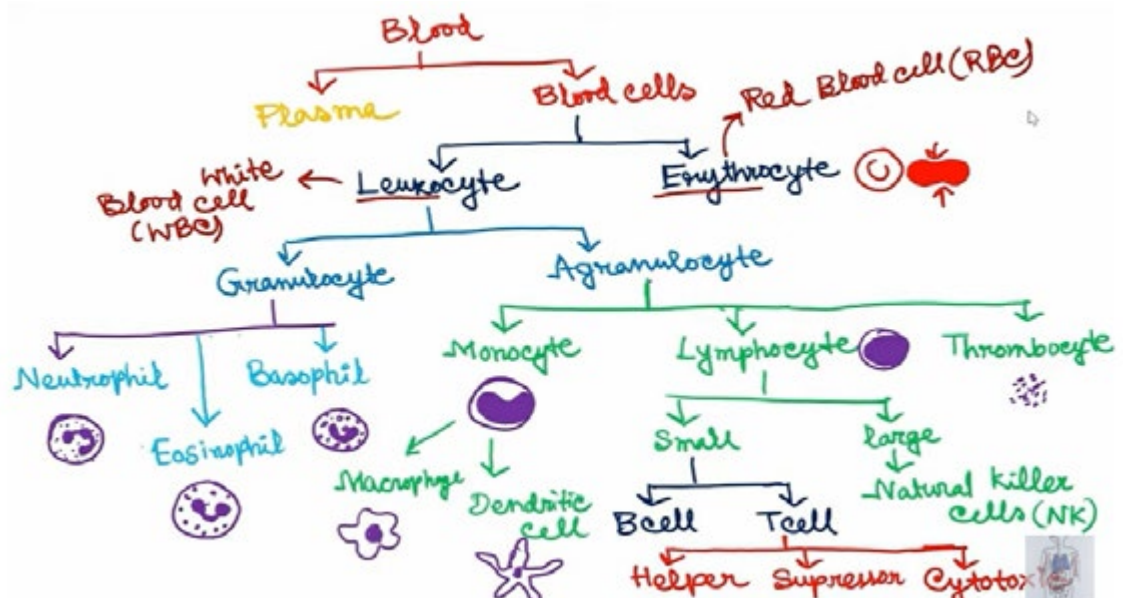 Blood
Plasma
Blood cells
Red Blood cell (RBC)
White
Blood cell
(WBC)
Leukocyte
Erythrocyte
Granulocyte
Agranulocyte
Neutrophil
Eosinophil
Basophil
Monocyte
Lymphocyte
Thrombocyte
Macrophage
Dendritic
cell
Small
large
B cell
T cell
Natural killer
cells (NK)
Helper
Supressor
Cytotoxic